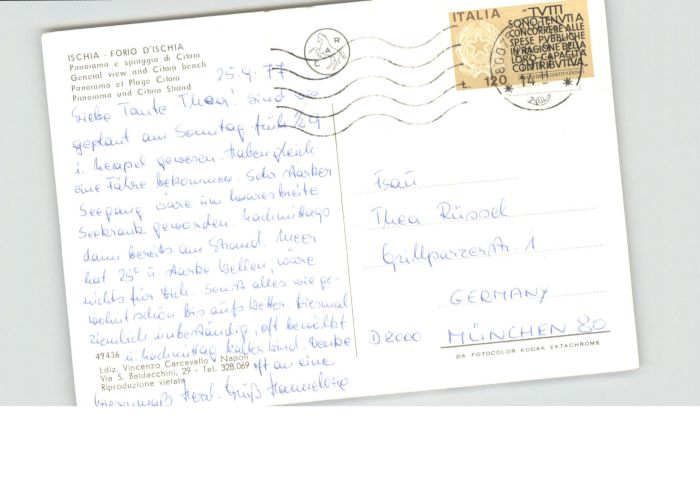 ISCHIA - FORIO D'ISCHIA
Panorama e spiaggia di Citara
General view and Citara beach
Panorama et Plage Citara
Panorama und Citara Strand
25.9.77
Liebe Tante Thea! Sind wie
geplant am Sonntag früh
i. Neapel gewesen. Haben gleich
eine Fähre bekommen. Sehr starker
Seegang wäre um haaresbreite
Seekrank geworden. Nachmittags
dann bereits am Strand. Meer
hat 25° u. starke Wellen, wäre
nichts für Dich. Sonst alles wie ge-
wohnt schön bis aufs Wetter. Diesmal
ziemlich unbeständig, oft bewölkt
u. nachmittag kalter Wind. Denke
oft an eine
Herzl. Gruß Hannelore
49436
Ediz. Vincenzo Carcavallo - Napoli
Via S. Baldacchini, 29 - Tel. 328.069
Riproduzione vietata
CAR
ITALIA
"TUTTI
SONO TENUTI A
CONCORRERE ALLE
SPESE PUBBLICHE
IN RAGIONE DELLA
LORO CAPACITÀ
CONTRIBUTIVA."
L. 120
14
Frau
Thea Rüssel
Grillparzerstr. 1
GERMANY
D 8000 MÜNCHEN 80
DA FOTOCOLOR KODAK EKTACHROME